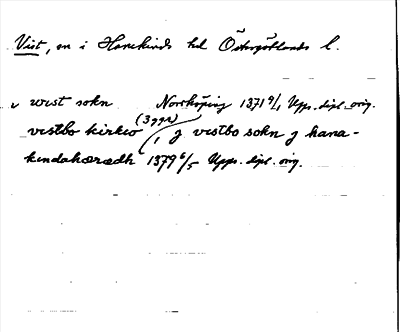 Vist, sn i Hanekinds hd Östergötlands l.
v wist sokn Norrköping 1371 9/1 Upps. dipl. orig.
(3 ggr)
vestbo kirkio , j vestbo sokn j hana-
kindahæradh 1379 6/5 Upps. dipl. orig.